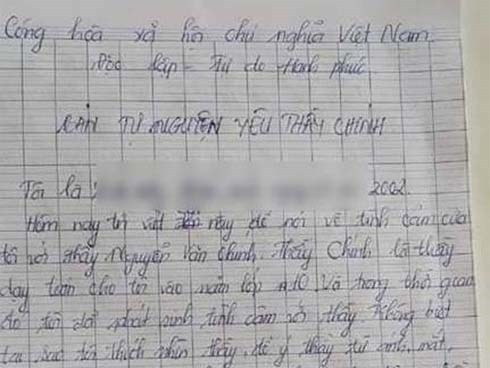 Cộng hòa xã hội chủ nghĩa Việt Nam.
Độc lập - Tự do - Hạnh phúc
BẢN TỰ NGUYỆN YÊU THẦY CHÍNH
Tôi là 2002.
Hôm nay tôi viết này để nói về tình cảm của
tôi với thầy Nguyễn Văn Chính. Thầy Chính là thầy
dạy toán cho tôi vào năm lớp 10 và trong thời gian
đó tôi đã phát sinh tình cảm với thầy không biết
tại sao tôi thích nhìn thầy, để ý thầy từ ánh mắt,